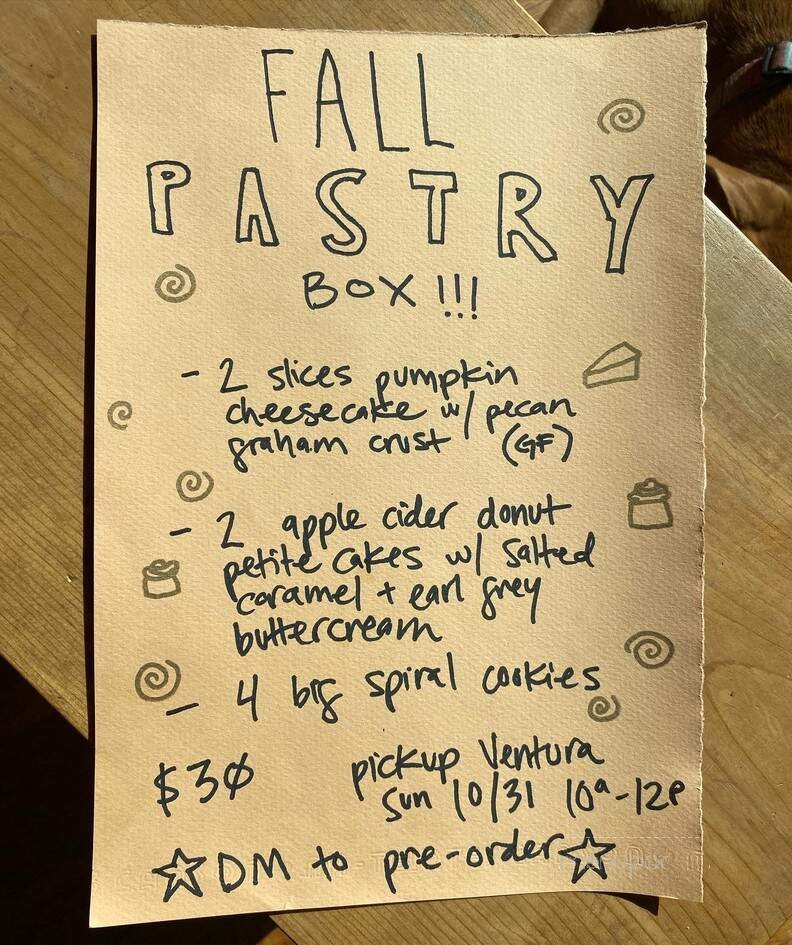 FALL
PASTRY
BOX!!!
- 2 slices pumpkin
cheesecake w/ pecan
graham crust (GF)
- 2 apple cider donut
petite cakes w/ salted
caramel + earl grey
buttercream
- 4 big spiral cookies
$30 pickup Ventura
Sun 10/31 10a-12p
☆DM to pre-order☆